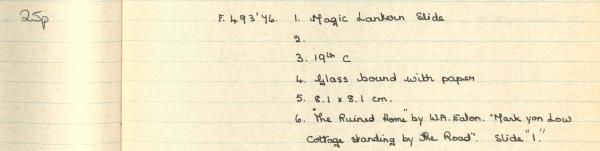 25p
F.493'76. 1. Magic Lantern Slide
2.
3. 19th C
4. Glass bound with paper
5. 8.1 x 8.1 cm.
6. "The Ruined Home" by W.A. Eaton. "Mark yon Low
Cottage standing by the Road". Slide "1."